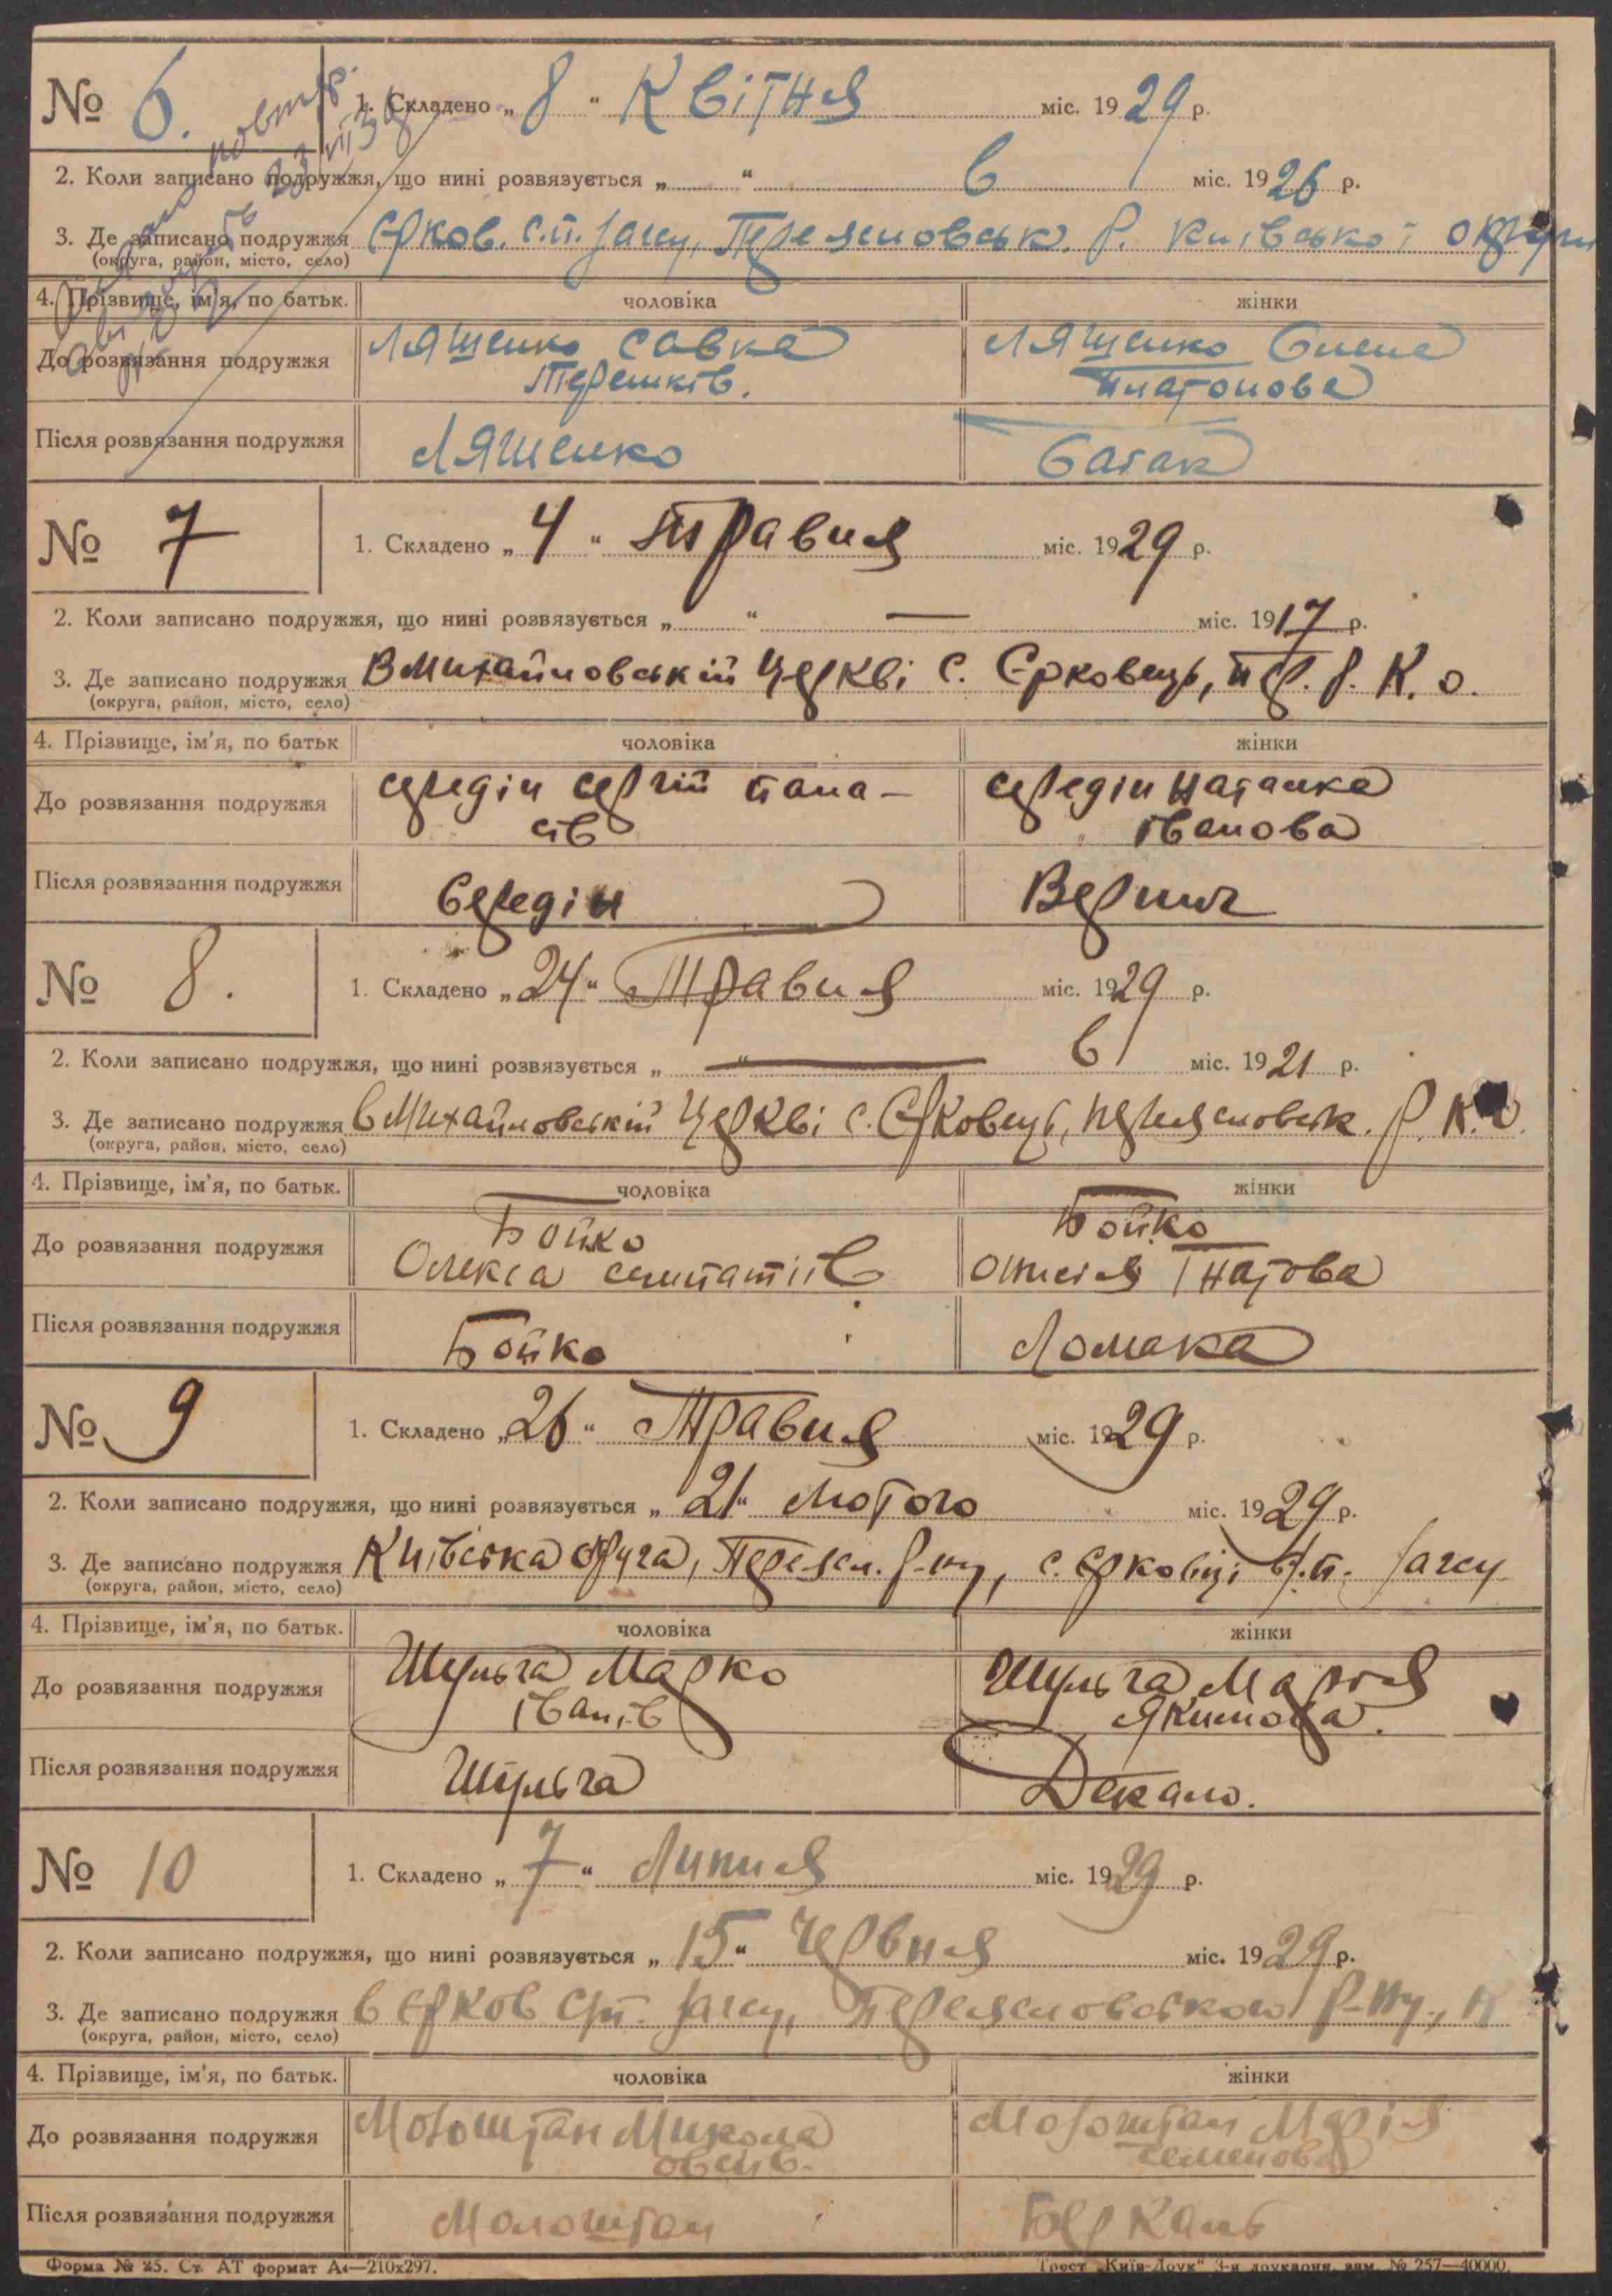 № 6. 1. Складено „ 8 “ Квітня міс. 1929 р.
2. Коли записано подружжя, що нині розвязується „ “ в міс. 1926 р.
3. Де записано подружжя Єрков. с.п. Загсу, Переясловськ. р. Київської округи
(округа, район, місто, село)
4. Прізвище, ім'я, по батьк. чоловіка жінки
До розвязання подружжя Ляшенко Савка Ляшенко Олена
Терешків. Платонова
Після розвязання подружжя Ляшенко
№ 7 1. Складено „ 4 “ Травня міс. 1929 р.
2. Коли записано подружжя, що нині розвязується „ “ — міс. 1917 р.
3. Де записано подружжя В Михайловській церкві с. Єрковець, пер. р. К. о.
(округа, район, місто, село)
4. Прізвище, ім'я, по батьк чоловіка жінки
До розвязання подружжя Середін Сергій Пана- Середін Наталка
сів Іванова
Після розвязання подружжя Середін
№ 8. 1. Складено „ 24 “ Травня міс. 1929 р.
2. Коли записано подружжя, що нині розвязується „ “ — в міс. 1921 р.
3. Де записано подружжя в Михайловській церкві с. Єрковець, переясловськ. р. К.о.
(округа, район, місто, село)
4. Прізвище, ім'я, по батьк. чоловіка жінки
До розвязання подружжя Бойко Бойко
Олекса Гнатова
Після розвязання подружжя Бойко Ломака
№ 9 1. Складено „ 26 “ Травня міс. 1929 р.
2. Коли записано подружжя, що нині розвязується „ 21 “ Лютого міс. 1929 р.
3. Де записано подружжя Київська округа, Переясл. р-ну, с. Єрковці Загсу
(округа, район, місто, село)
4. Прізвище, ім'я, по батьк. чоловіка жінки
До розвязання подружжя Шульга Марко Шульга Марія
Іванів Якимова.
Після розвязання подружжя Шульга Декало.
№ 10 1. Складено „ 7 “ Липня міс. 1929 р.
2. Коли записано подружжя, що нині розвязується „ 15 “ Червня міс. 1929 р.
3. Де записано подружжя в Єрков с/п. Загсу, Переясловського р-ну, К
(округа, район, місто, село)
4. Прізвище, ім'я, по батьк. чоловіка жінки
До розвязання подружжя Молоштан Микола Молоштан Марія
Овсіїв. Семенова
Після розвязання подружжя Молоштан
Форма № 25. Ст. АТ формат А4—210х297. Трест „Київ-Друк“ 3-я друкарня, зам. № 257—40000.